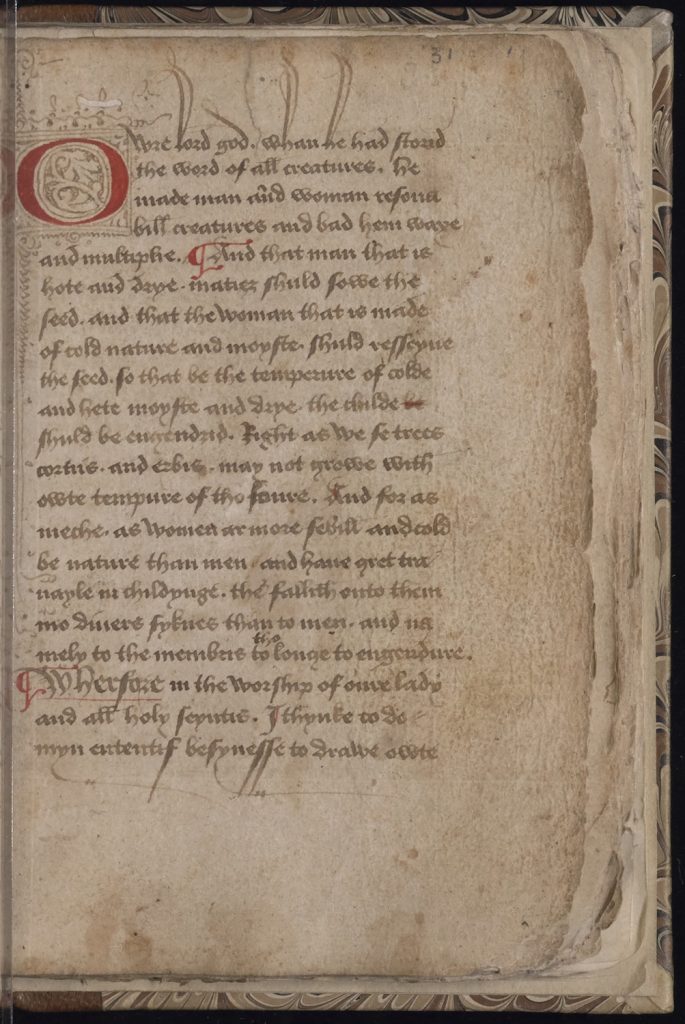 31
Owre lord god. whan he had storid
the word of all creatures. he
made man and woman resona
bill creatures and bad hem waxe
and multiplie. ¶ And that man that is
hote and drye. matier shuld sowe the
seed. and that the woman that is made
of cold nature and moyste. shuld resseyue
the seed. so that be the temperure of colde
and hete moyste and drye. the childe be
shuld be engendrid. Right as we se trees
cornis. and erbis. may not growe with
owte tempure of tho foure. And for as
meche. as women ar more febill and cold
be nature than men and haue gret tra
uayle in childynge. ther fallith onto them
mo diuers syknes than to men. and na
mely to the membris tho to longe to engendure.
¶ Wherfore in the worship of oure lady
and all holy seyntis. I thynke to do
myn ententif besynesse to drawe owte